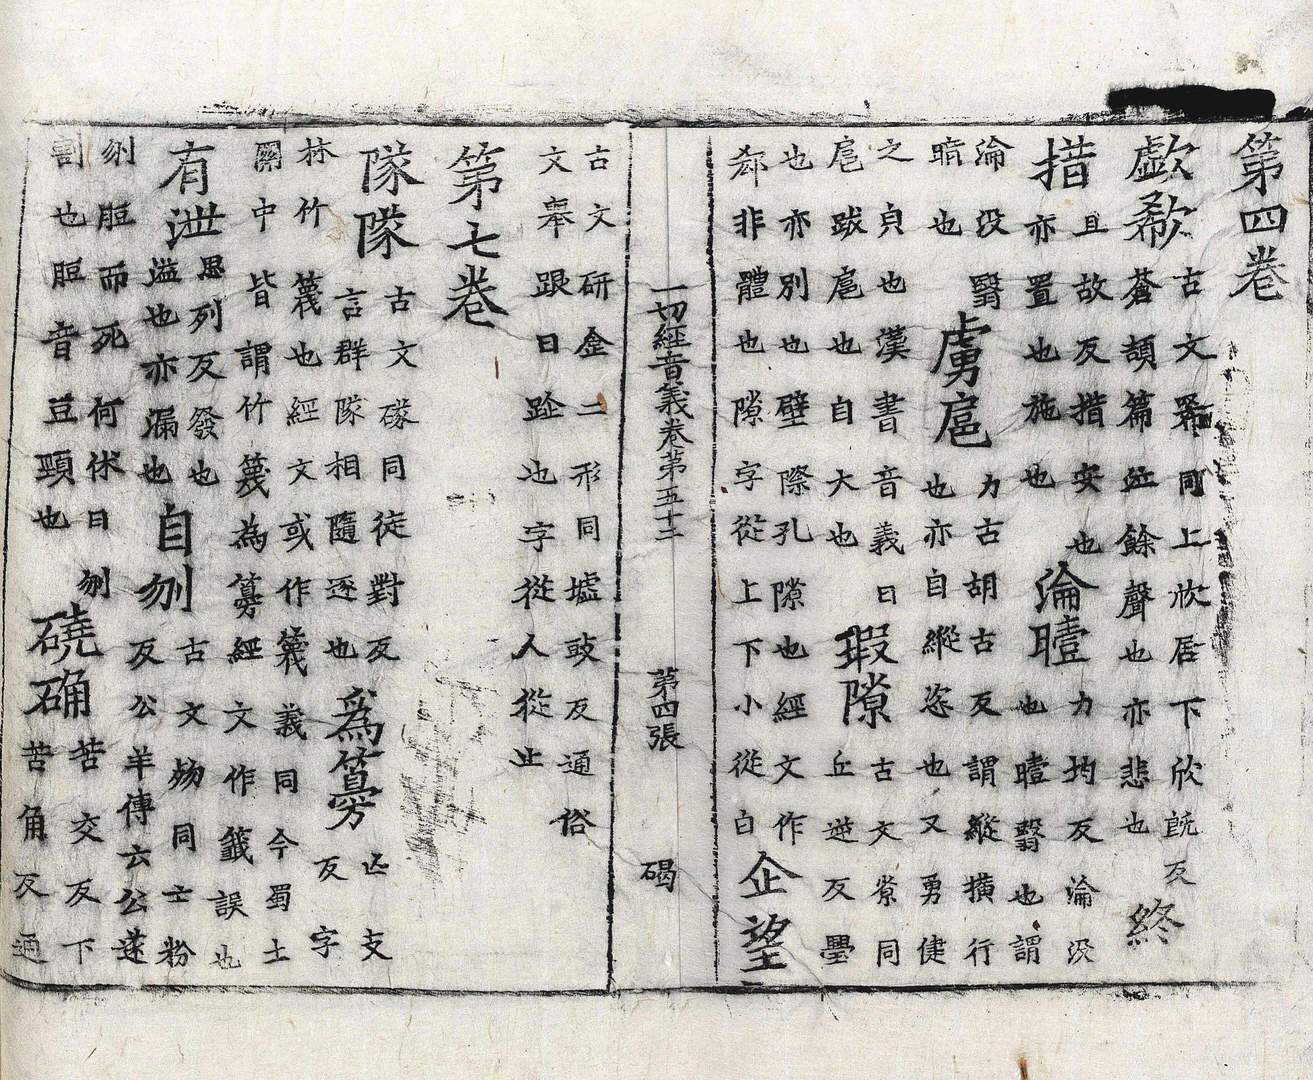 第四卷
歔欷
古文𢁥同上欣居下欣旣反
蒼頡篇泣餘聲也亦悲也
終
措
且故反措安也
亦置也施也
淪曀
力均反淪没
也曀翳也謂
淪没翳
暗也
虜扈
力古胡古反謂縱撗行
也亦自縱恣也又勇健
之皃也漢書音義曰
扈跋扈也自大也
瑕隙
古文𡭽同
丘逆反墨
也亦別也壁際孔隙也經文作
郄非體也隙字從上下小從白
企望
一切經音義卷第五十二
第四張
碣
古文研金二形同墟豉反通俗
文舉跟曰趾也字從人從止
第七卷
隊隊
古文磙同徒對反
言群隊相隨逐也
為篣
亡支
反字
林竹篾也經文或作篾義同今蜀土
關中皆謂竹篾為篣經文作籤誤也
有泄
思列反發也
溢也亦漏也
自刎
古文歾同亡粉
反公羊傳云公遂
刎脰而死何休曰刎
割也脰音豆頸也
磽确
苦交反下
苦角反通